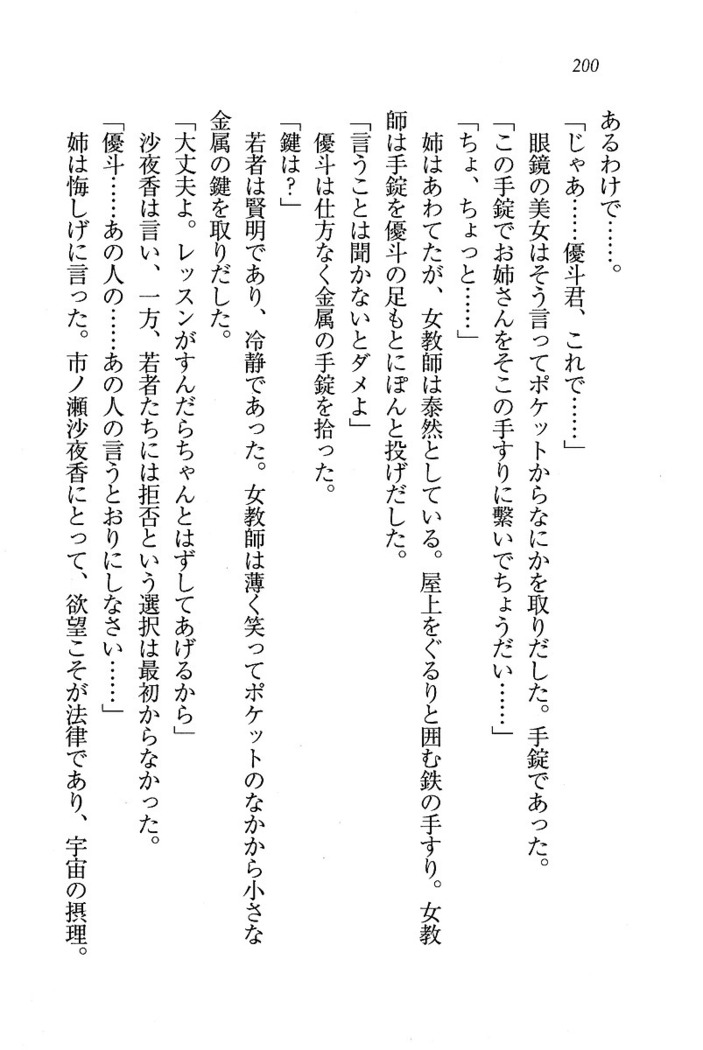 200
あるわけで……。
「じゃあ……優斗君、これで……」
眼鏡の美女はそう言ってポケットからなにかを取りだした。手錠であった。
「この手錠でお姉さんをそこの手すりに繋いでちょうだい……」
「ちょ、ちょっと……」
姉はあわてたが、女教師は泰然としている。屋上をぐるりと囲む鉄の手すり。女教
師は手錠を優斗の足もとにぽんと投げだした。
「言うことは聞かないとダメよ」
優斗は仕方なく金属の手錠を拾った。
「鍵は？」
若者は賢明であり、冷静であった。女教師は薄く笑ってポケットのなかから小さな
金属の鍵を取りだした。
「大丈夫よ。レッスンがすんだらちゃんとはずしてあげるから」
沙夜香は言い、一方、若者たちには拒否という選択は最初からなかった。
「優斗……あの人の……あの人の言うとおりにしなさい……」
姉は悔しげに言った。市ノ瀬沙夜香にとって、欲望こそが法律であり、宇宙の摂理。